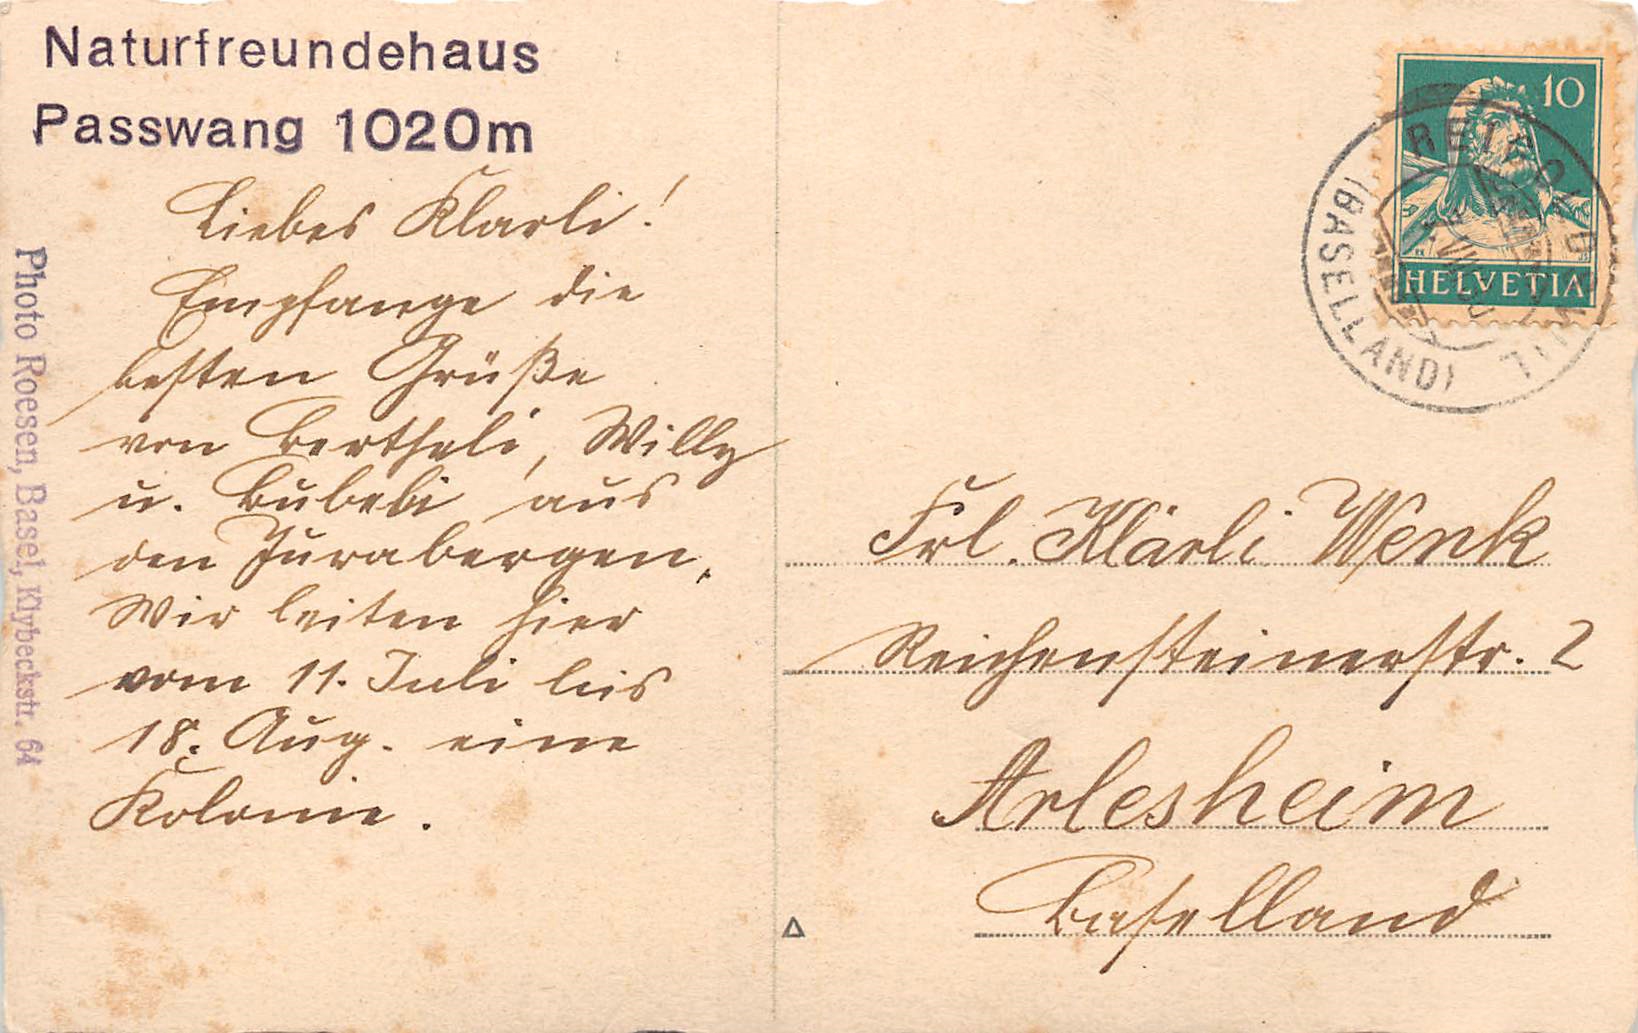 Naturfreundehaus
Passwang 1020m
Liebes Klarli!
Empfange die
besten Grüße
von Bertheli, Willy
u. Bubebi aus
den Jurabergen.
Wir leiten hier
vom 11. Juli bis
18. Aug. eine
Kolonie.
Photo Roesen, Basel, Klybeckstr. 64
10
HELVETIA
REIGOLDSWIL
(BASELLAND)
Frl. Klärli Wenk
Reichensteinerstr. 2
Arlesheim
Baselland